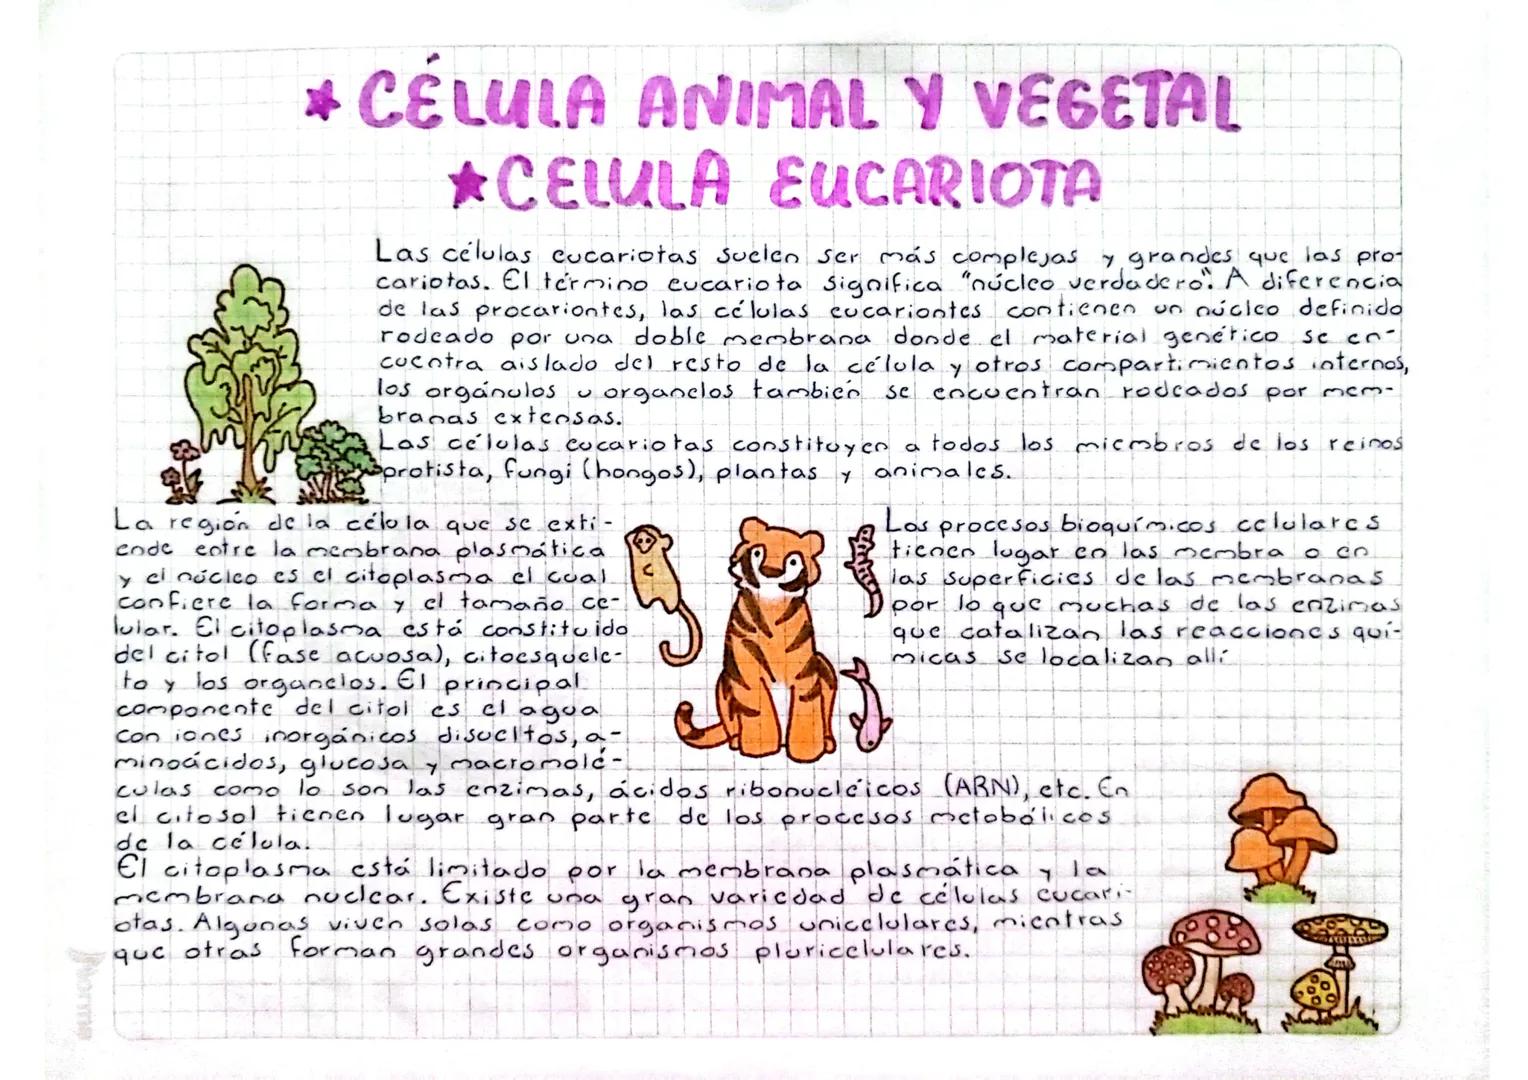 ★ CÉLULA ANIMAL Y VEGETAL
★ CELULA EUCARIOTA
Las células eucariotas suelen ser más complejas y grandes que las pro-
cariotas. El término eucariota significa "núcleo verdadero". A diferencia
de las procariontes, las células eucariontes contienen un núcleo definido
rodeado por una doble membrana donde el material genético se en-
cuentra aislado del resto de la célula y otros compartimientos internos,
los orgánulos u organelos también se encuentran rodeados por mem-
branas extensas.
Las células eucariotas constituyen a todos los miembros de los reinos
protista, fungi (hongos), plantas y animales.
La región de la célula que se exti-
ende entre la membrana plasmática
y el núcleo es el citoplasma el cual
confiere la forma y el tamaño ce-
lular. El citoplasma está constituido
del citol (fase acuosa), citoesquele-
to y los organelos. El principal
componente del citol es el agua
con iones inorgánicos disueltos, a-
minoácidos, glucosa y macromolé-
culas como lo son las enzimas, ácidos ribonucléicos (ARN), etc. En
el citosol tienen lugar gran parte de los procesos metobólicos
de la célula.
El citoplasma está limitado por la membrana plasmática y la
membrana nuclear. Existe una gran variedad de células eucari-
otas. Algunas viven solas como organismos unicelulares, mientras
que otras forman grandes organismos pluricelulares.
Los procesos bioquímicos celulares
tienen lugar en las membra o en
las superficies de las membranas
por lo que muchas de las enzimas
que catalizan las reacciones quí-
micas se localizan allí
Norma